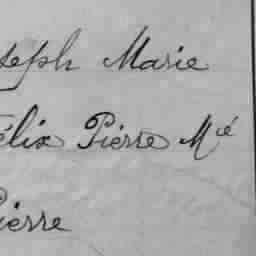 oseph Marie
élix Pierre Mié
ierre